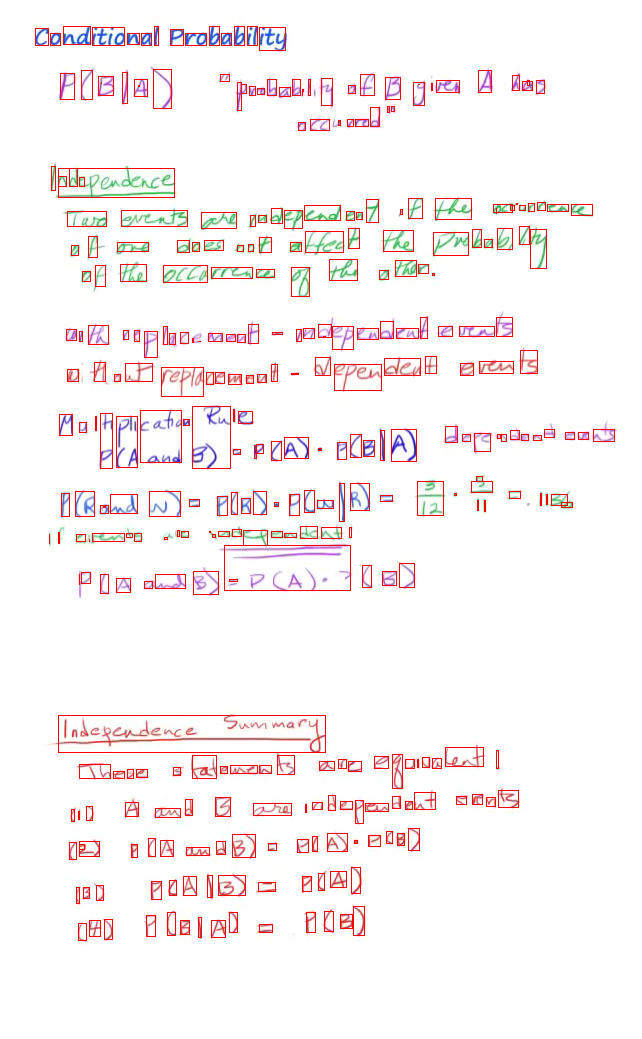 Conditional Probability
P(B|A) "probability of B given A has
occured"
Independence
Two events are independent if the occurrence
of one does not affect the probability
of the occurrence of the other.
with replacement - independent events
without replacement - dependent events
Multiplication Rule
P(A and B) = P(A) · P(B|A) dependent events
P(R and W) = P(R) · P(W|R) = 3/12 · 5/11 = .1136
If events are independent:
P(A and B) = P(A) · P(B)
Independence Summary
These statements are equivalent:
(1) A and B are independent events
(2) P(A and B) = P(A) · P(B)
(3) P(A|B) = P(A)
(4) P(B|A) = P(B)